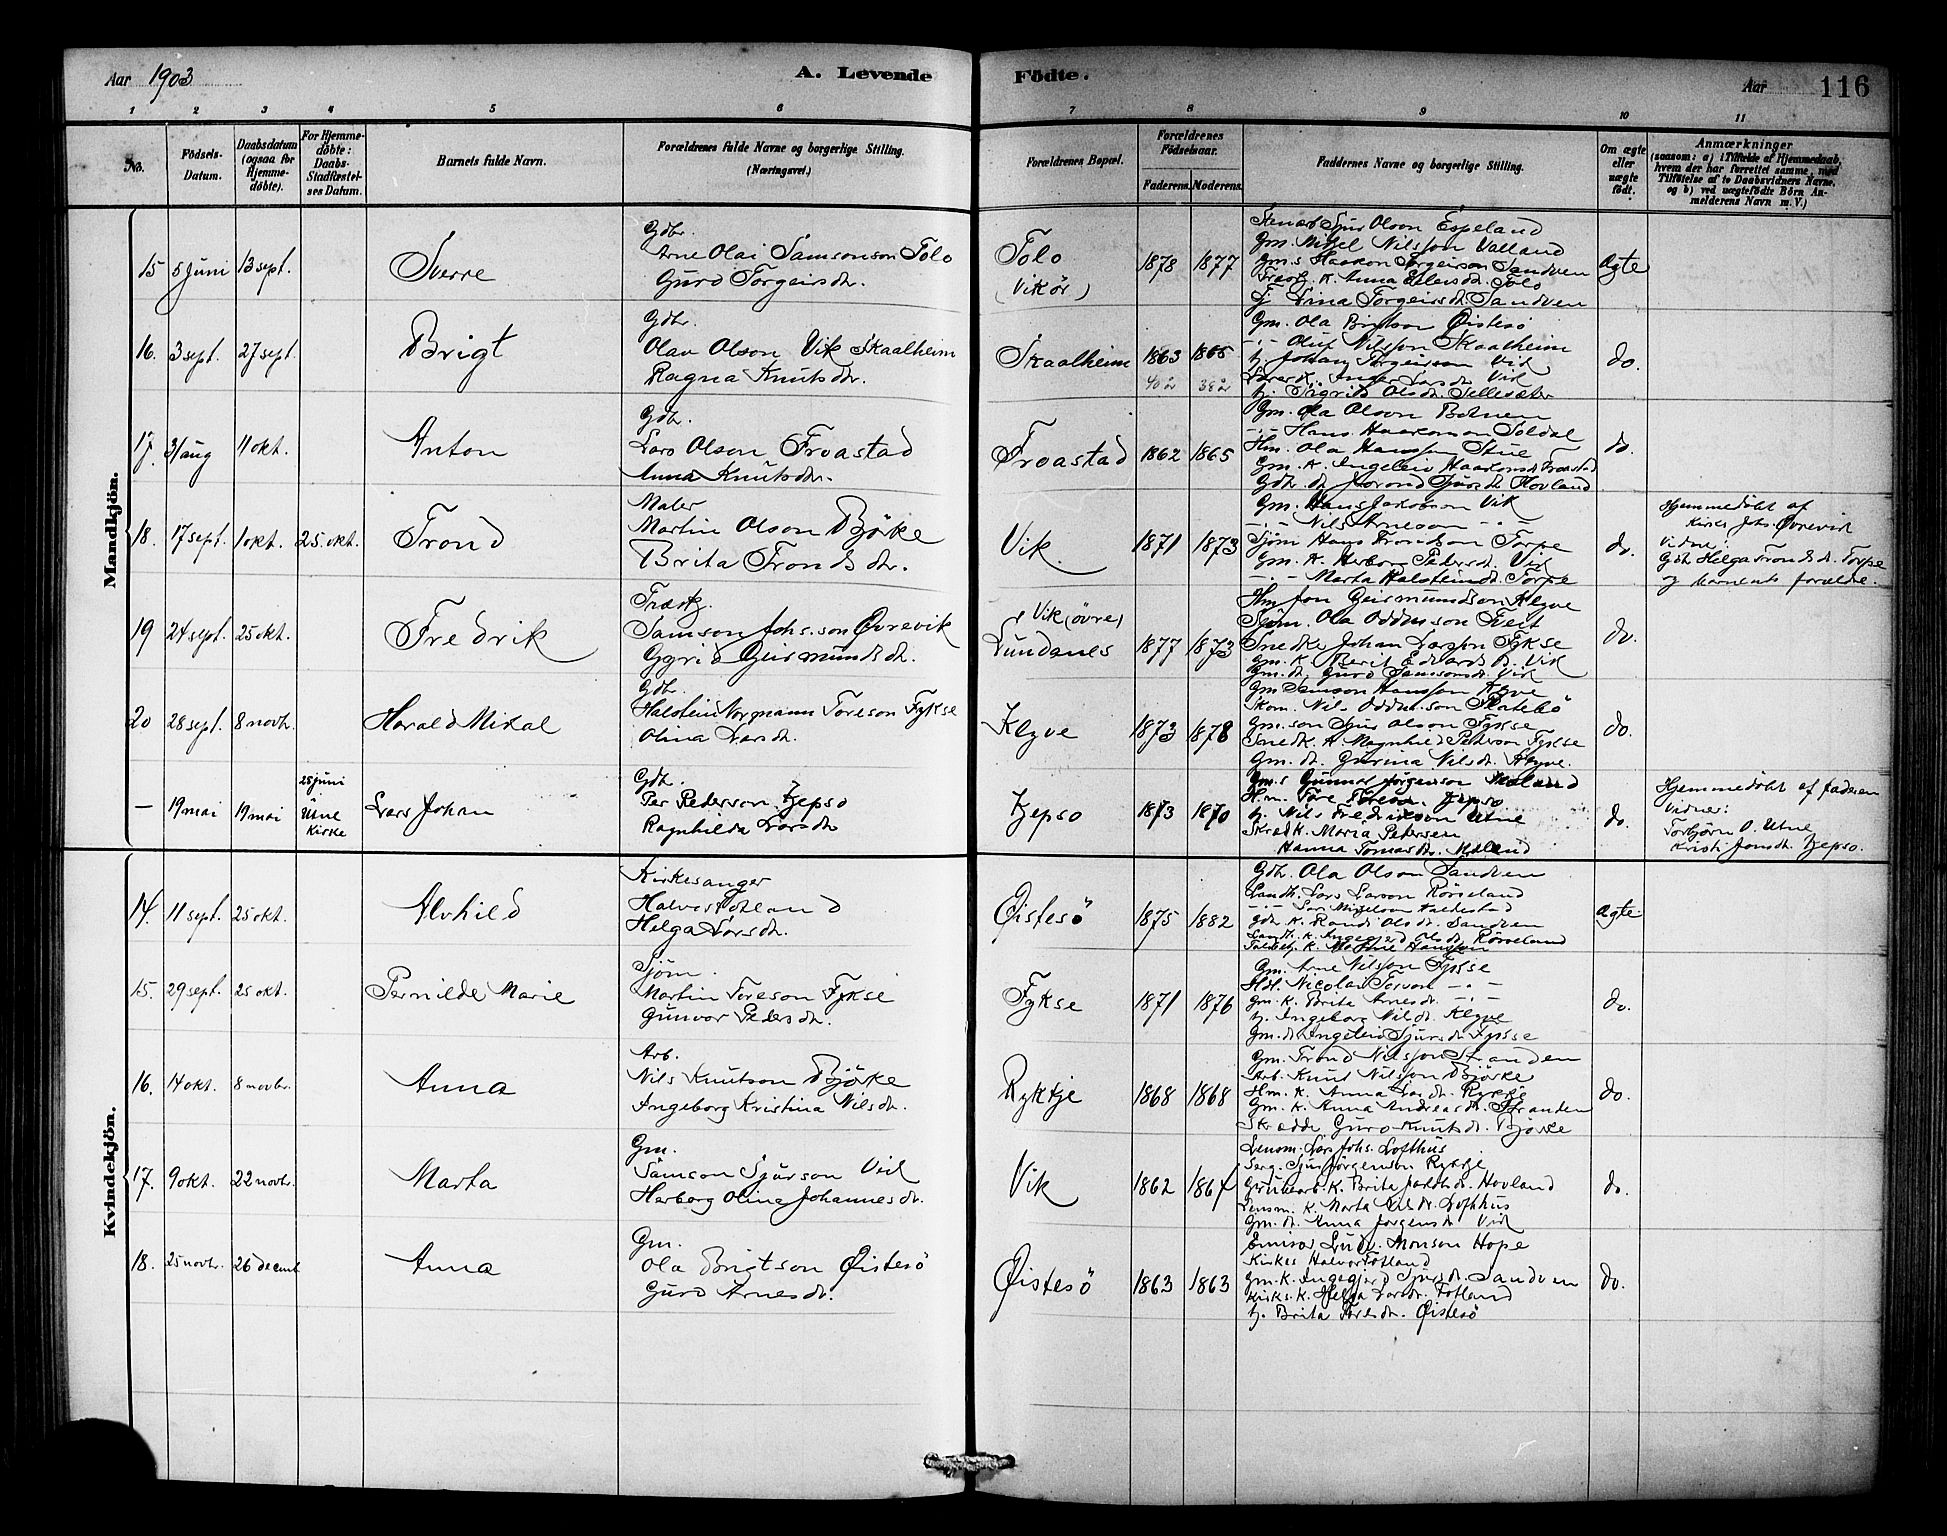 Aar 1903
A. Levende
Födte.
Aar 116
1 2 3 4 5 6 7 8 9 10 11
No.
Födsels-Datum.
Daabsdatum (ogsaa for Hjemme-döbte).
For Hjemme-döbte: Daabs-Stadfæstel-ses Datum.
Barnets fulde Navn.
Forældrenes fulde Navne og borgerlige Stilling.
(Næringsvei.)
Forældrenes Bopæl.
Forældrenes Födselsaar.
Faderens. Moderens.
Faddernes Navne og borgerlige Stilling.
Om ægte eller uægte födt.
Anmærkninger
(saasom: a) i Tilfælde af Hjemmedaab, hvem der har forrettet samme, med Tilföielse af to Daabsvidners Navne, og b) ved uægtefödte Börn Anmelderens Navn m. V.)
Mandkjön.
15 5 juni 13 sept.
Sverre
Gdbr.
Arne Olai Samsonson Tolo
Guro Torgeirsdr.
Tolo
(Vikör)
1878 1877
Sjur Olson Espeland
Gm. Mikjel Nilsson Valland
Gm.s Haakon Torgeirson Sandven
K. Anna Tolo
Lina Torgeirsdr. Sandven
Ægte
16. 3 sept. 27 sept.
Brigt
Gdbr.
Olav Olson Vik Skaalheim
Ragna Knutsdtr.
Skaalheim
1863 1865
Gm. Ola Brigtson Øistesö
-"- Oluf Nilsson Skaalheim
Johan Torgeirson Vik
Inger Larsdr. Vik
Sigrid Olsdr. Tellesæter
do.
17. 31 aug 11 okt.
Anton
Gdb.
Lars Olson Froastad
Anna Knutsdtr.
Froastad
1862 1865
Gm. Ola Olson Botnen
-"- Hans Haakonson Soldal
Hm. Ola Hansson Stue
Gm. K. Ingeleiv Haakonsd. Froastad
Gdbr. dr. Jorond Sjursdr. Hovland
do.
18. 17 sept. 1 okt. 25. okt.
Trond
Maler
Martin Olson Bjöke
Brita Trondsdr.
Vik.
1871 1873
Gm. Hans Jakobson Vik
-"- Nils Arneson -"-
Sjöm Hans Trondson Torpe
Gm. K. Herborg Pedersdr. Vik
-"- Marta Halsteindr. Torpe
do.
Hjemmedöbt af
Kirks. Johs. Övrevik
Vidne:
Gdb. Helga Trondsdr. Torpe
og barnets forældre.
19 24 sept. 25 okt.
Fredrik
Samson Johs.son Øvrevik
Gyrid Geirmundsdr.
Vik (övre)
Lundanes
1877 1873
Hm Jon Geirmundson Klyve
Sjöm. Ola Oddmson Tveit
Snedke Johan Larsson Fykse
Gm. K. Berit Edvardsdr. Vik
Gm. dr. Guro Samsonsdr. Vik
do.
20 28 sept. 8 novbr.
Harald Mikal
Gdb.
Halstein Norgmann Toreson Fykse
Olina Larsdr.
Klyve
1873 1878
Gm Samson Hansson Klyve
Skom. Nils Oddmson Flatebö
Gm. son Sjur Olson Fykse
Snedk. K. Magnhild Pederson Fykse
Gm. dr. Gurina Nilsdr. Klyve.
do.
— 19 mai 19 mai 28 juni
Utne
Kirke
Lars Johan
Gdb.
Per Pederson Kjepso
Ragnhilda Larsdr
Kjepso
1873 1870
Gm.s Gunnar Jørgenson Maland
Hm. Tore Toreson Kjepso
Nils Fredrikson Utne
Skræd K. Maria Petersen
Hanna Tomasdr. Maland
do.
Hjemmedöbt af faderen
Vidner:
Torbjørn O. Utne
Kristi Jonsdr. Kjepso.
Kvindekjön.
14. 11 sept. 25 okt.
Alvhild
Kirkesanger
Halvor Fotland
Helga Larsdr.
Øistesö
1875 1882
Gdb. Ola Olson Sandven
Landh. Lars Larson Rörseland
Gdb. K. Randi Olsdr. Sandven
Landh. K. Ingegjerd Olsdr. Rörseland
Ægte
15. 29 sept. 25 okt.
Pernilde Marie
Sjöm.
Martin Toreson Fykse
Gunvor Pedersdr.
Fykse
1871 1876
Gm. Arne Nilsson Fykse
Hdl. Nicolai Iverson -"-
Gm. K. Brita Arnesdr. -"-
Ingeborg Nilsdr. Klyve
Gm. dr. Ingeleiv Sjursdr. Fykse
do.
16. 14 okt. 8 novbr.
Anna
Arb.
Nils Knutson Bjørke
Ingeborg Kristina Nilsdr.
Rykkje
1868 1868
Gm. Trond Nilsson Stranden
Arb. Knut Nilsson Bjørke
Hm. K. Anna Larsdr. Rykkje
Gm. K. Anna Andreasdr. Stranden
Skrædde Guro Knutsdr. Bjørke
do.
17. 9 okt. 22 novbr.
Marta
Gm.
Samson Sjurson Vik
Herborg Oline Johannesdr.
Vik
1862 1864
Lensm. Lars Johs. Lofthus
Serg. Sjur Jørgenson Rykkje
Grubearb. K. Brita Jakobsdr. Hovland
Lensm. K. Marta Nilsdr. Lofthus
Gm. dr. Anna Jørgensdr. Vik
do.
18. 25 novbr. 26 decemb
Anna
Gm.
Ola Brigtson Øistesö
Guro Arnesdr.
Øistesö
1863 1863
Emissær Ludv. Monson Hope
Kirkes. Halvor Fotland
Gm. K. Ingegjerd Sjursdr. Sandven
Kirks. K. Helga Larsdr. Fotland
Brita Toresdr. Øistesö
do.